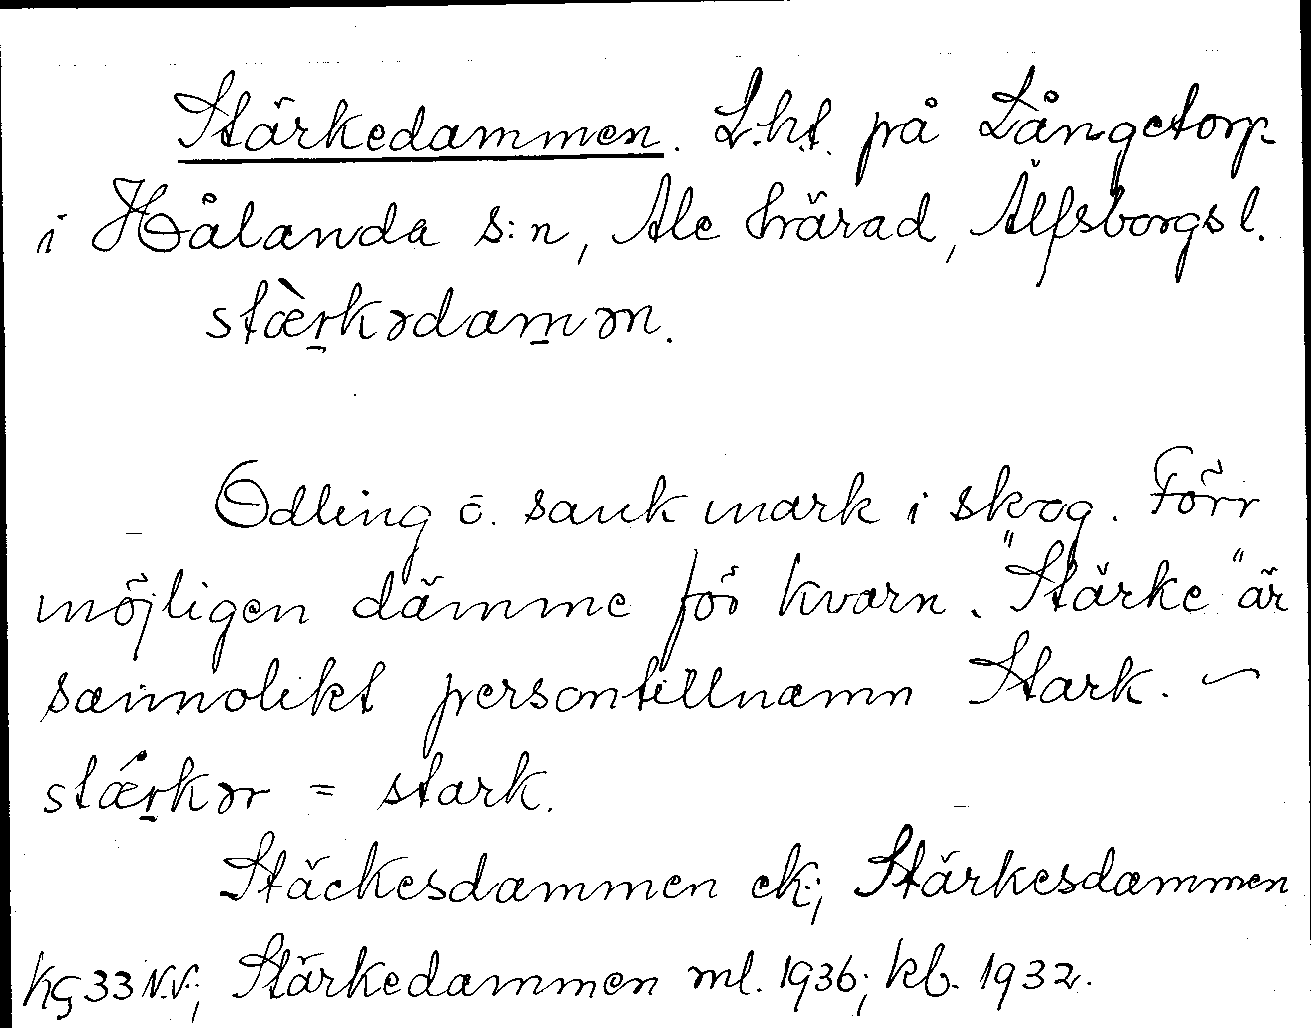 Stärkedammen. L.h.t. på Långetorp
i Hålanda s:n, Ale härad, Älfsborgs l.
stæ̀rkədamən.
Odling o. sank mark i skog. Förr
möjligen dämme för kvarn. "Stärke" är
sannolikt persontillnamn Stark. ~
stǽrkər = stark.
Stäckesdammen ek; Stärkesdammen
33 N.V.; Stärkedammen ml. 1936; kb. 1932.